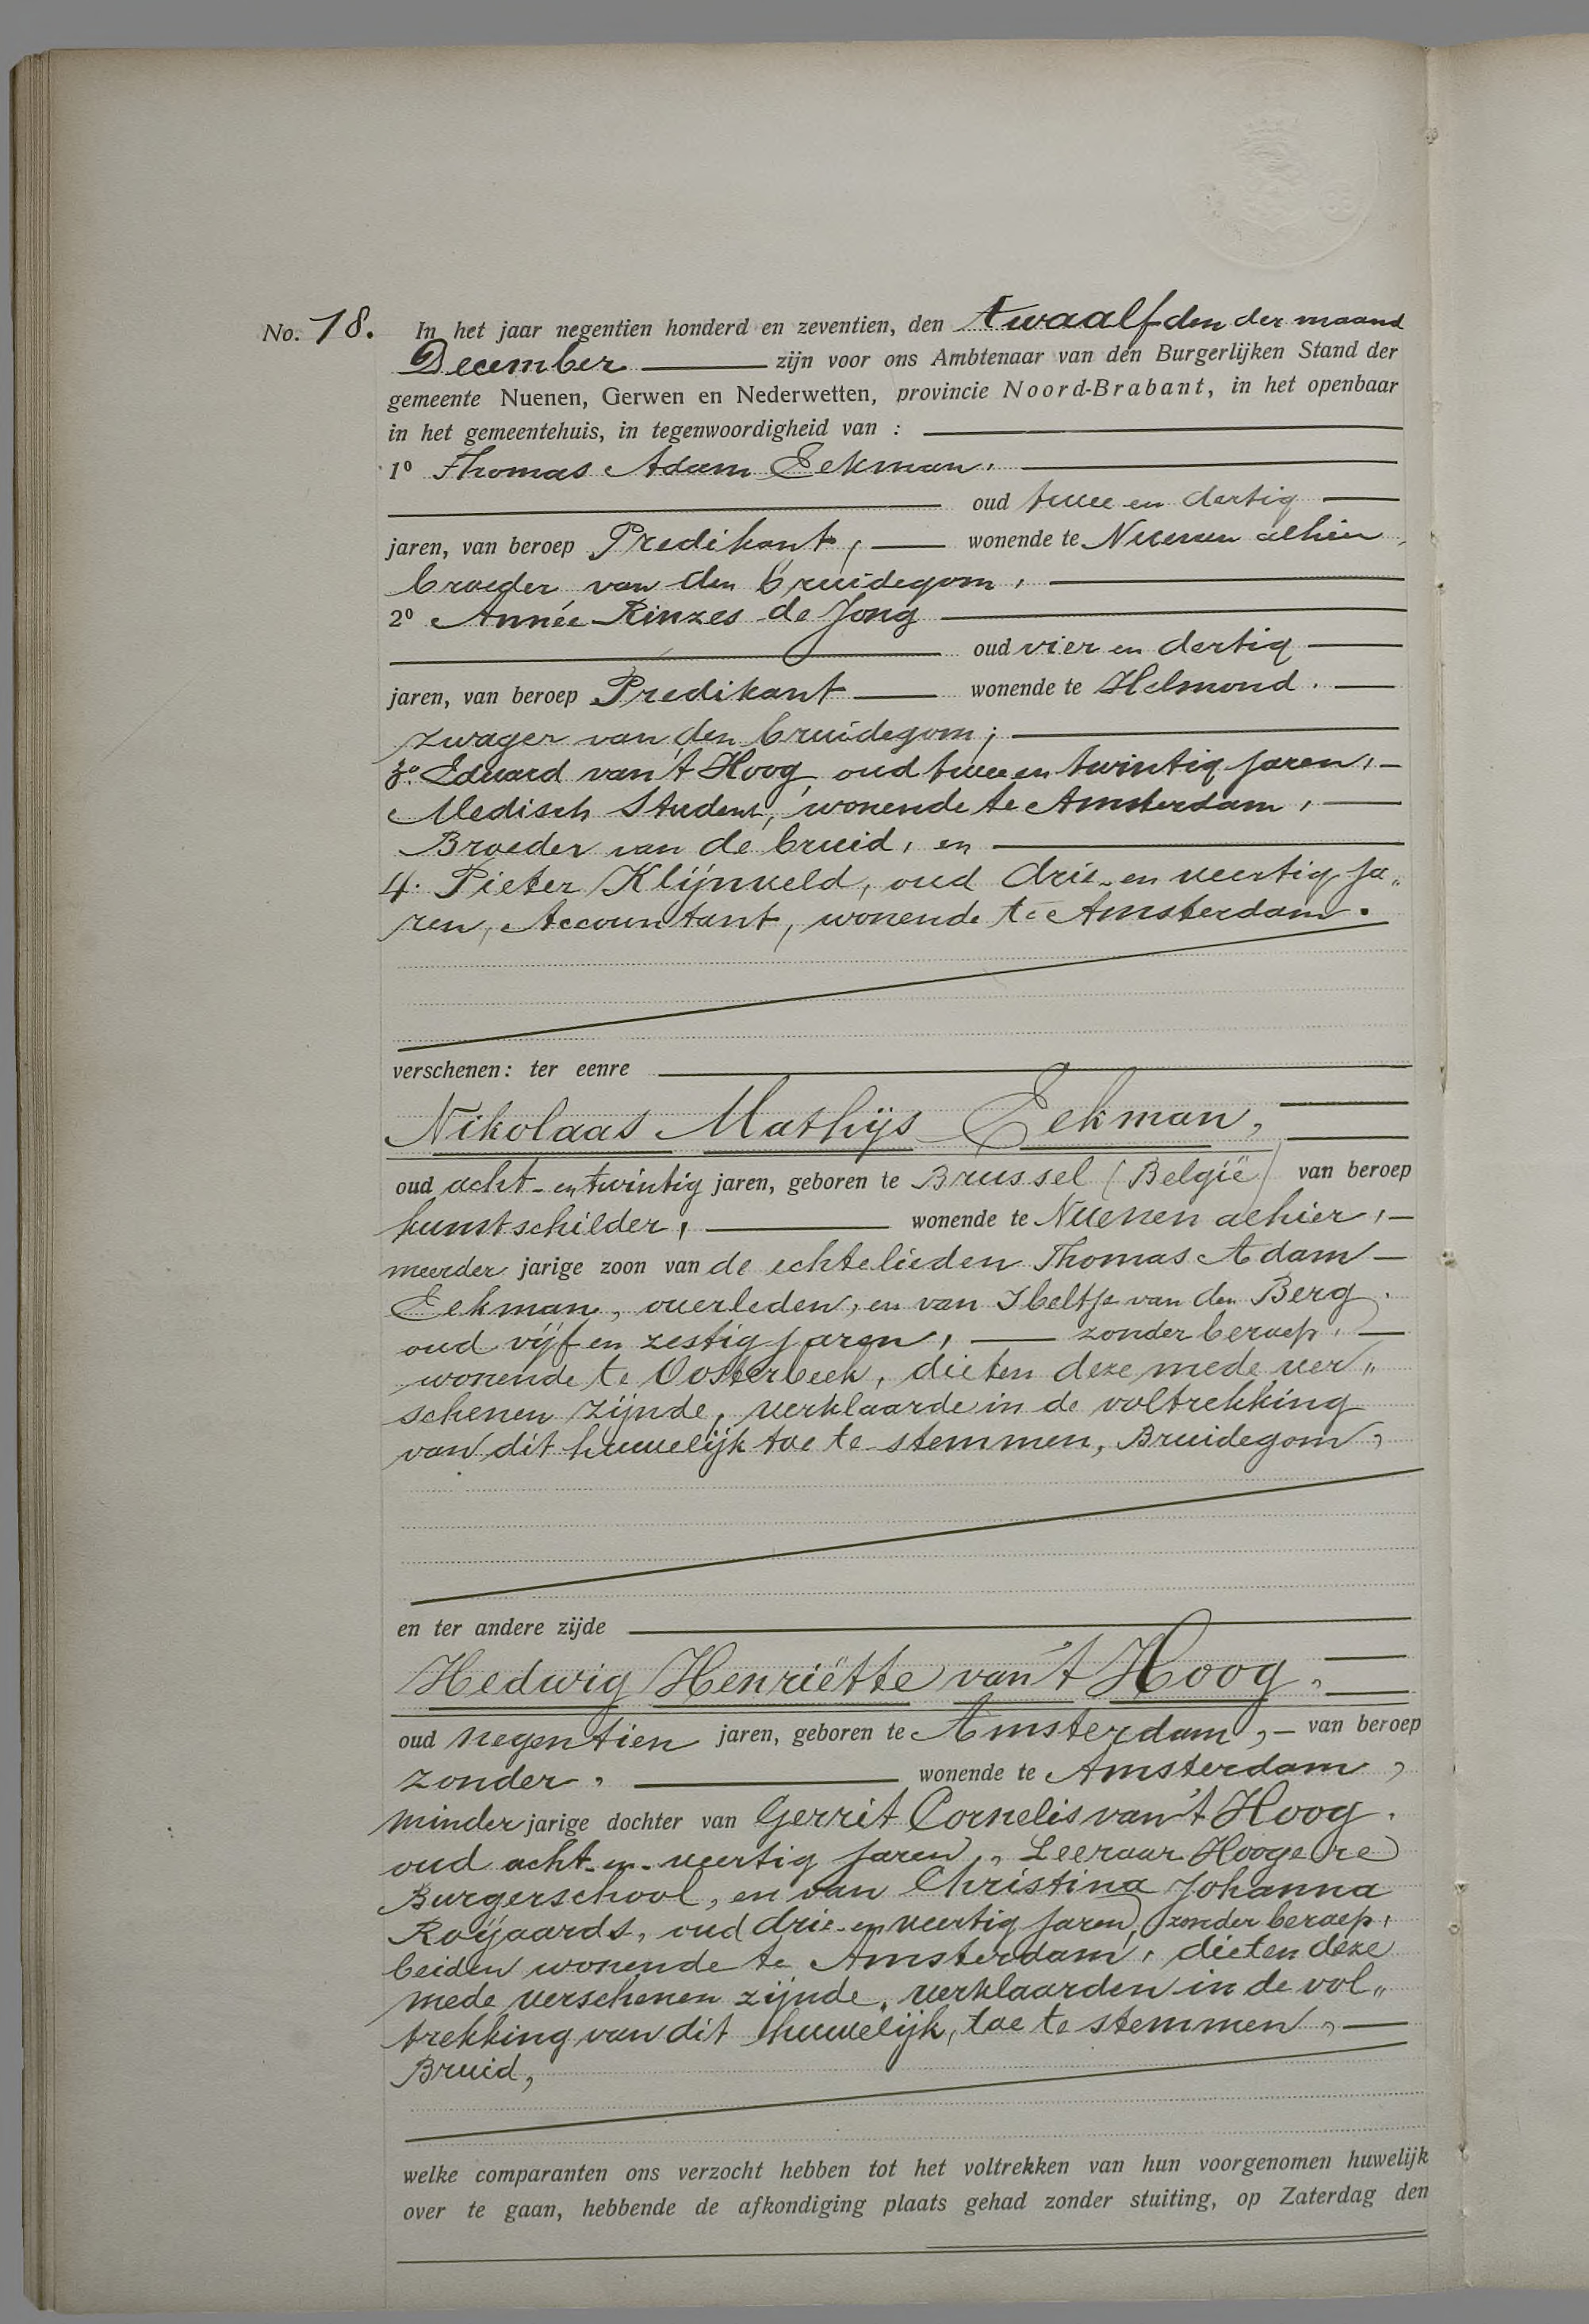 No. 18. In het jaar negentien honderd en zeventien, den twaalfden der maand
December zijn voor ons Ambtenaar van den Burgerlijken Stand der
gemeente Nuenen, Gerwen en Nederwetten, provincie Noord-Brabant, in het openbaar
in het gemeentehuis, in tegenwoordigheid van :
1o Thomas Adam Eekman,
oud twee en dertig
jaren, van beroep Predikant, wonende te Nuenen alhier,
broeder van den bruidegom,
2o Année Rinzes de Jong
oud vier en dertig
jaren, van beroep Predikant wonende te Helmond.
zwager van den bruidegom;
3o. Eduard van 't Hoog, oud twee en twintig jaren,
Medisch Student, wonende te Amsterdam,
Broeder van de bruid, en
4. Pieter Klijnveld, oud drie-en veertig ja„
ren, Accountant, wonende te Amsterdam.
verschenen: ter eenre
Nikolaas Mathijs Eekman,
oud acht-en twintig jaren, geboren te Brussel (België) van beroep
kunstschilder, wonende te Nuenen alhier,
meerder jarige zoon van de echtelieden Thomas Adam
Eekman, overleden, en van IJbeltje van den Berg,
oud vijf en zestig jaren, zonder beroep,
wonende te Oosterbeek, die ten deze mede ver„
schenen zijnde, verklaarde in de voltrekking
van dit huwelijk toe te stemmen, Bruidegom,
en ter andere zijde
Hedwig Henriëtte van 't Hoog,
oud negentien jaren, geboren te Amsterdam, van beroep
zonder, wonende te Amsterdam,
minder jarige dochter van Gerrit Cornelis van 't Hoog,
oud acht-en-veertig jaren, Leeraar Hoogere
Burgerschool, en van Christina Johanna
Roijaards, oud drie-en veertig jaren, zonder beroep,
beiden wonende te Amsterdam, die ten deze
mede verschenen zijnde, verklaarden in de vol„
trekking van dit huwelijk, toe te stemmen,
Bruid,
welke comparanten ons verzocht hebben tot het voltrekken van hun voorgenomen huwelijk
over te gaan, hebbende de afkondiging plaats gehad zonder stuiting, op Zaterdag den